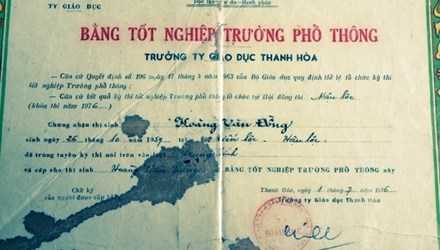 TY GIÁO DỤC
BẰNG TỐT NGHIỆP TRƯỜNG PHỔ THÔNG
TRƯỞNG TY GIÁO DỤC THANH HÓA
— Căn cứ Quyết định số 196 ngày 17 tháng 4 năm 1963 của Bộ Giáo dục quy định thể lệ tổ chức kỳ thi
tốt nghiệp Trường phổ thông ;
— Căn cứ kết quả kỳ thi tốt nghiệp Trường phổ thông tổ chức tại Hội đồng thi Hậu lộc
(khóa thi năm 1976
Chứng nhận thí sinh Hoàng Văn Đồng
sinh ngày 26 tháng 10 năm 1959 lộc Hậu lộc
đã trúng tuyển kỳ thi nói trên
và cấp cho thí sinh Hoàng BẰNG TỐT NGHIỆP TRƯỜNG PHỔ THÔNG này
Chữ ký
của người được cấp
Thanh Hóa, ngày 1 tháng 7 năm 1976
Trưởng ty Giáo dục Thanh Hóa